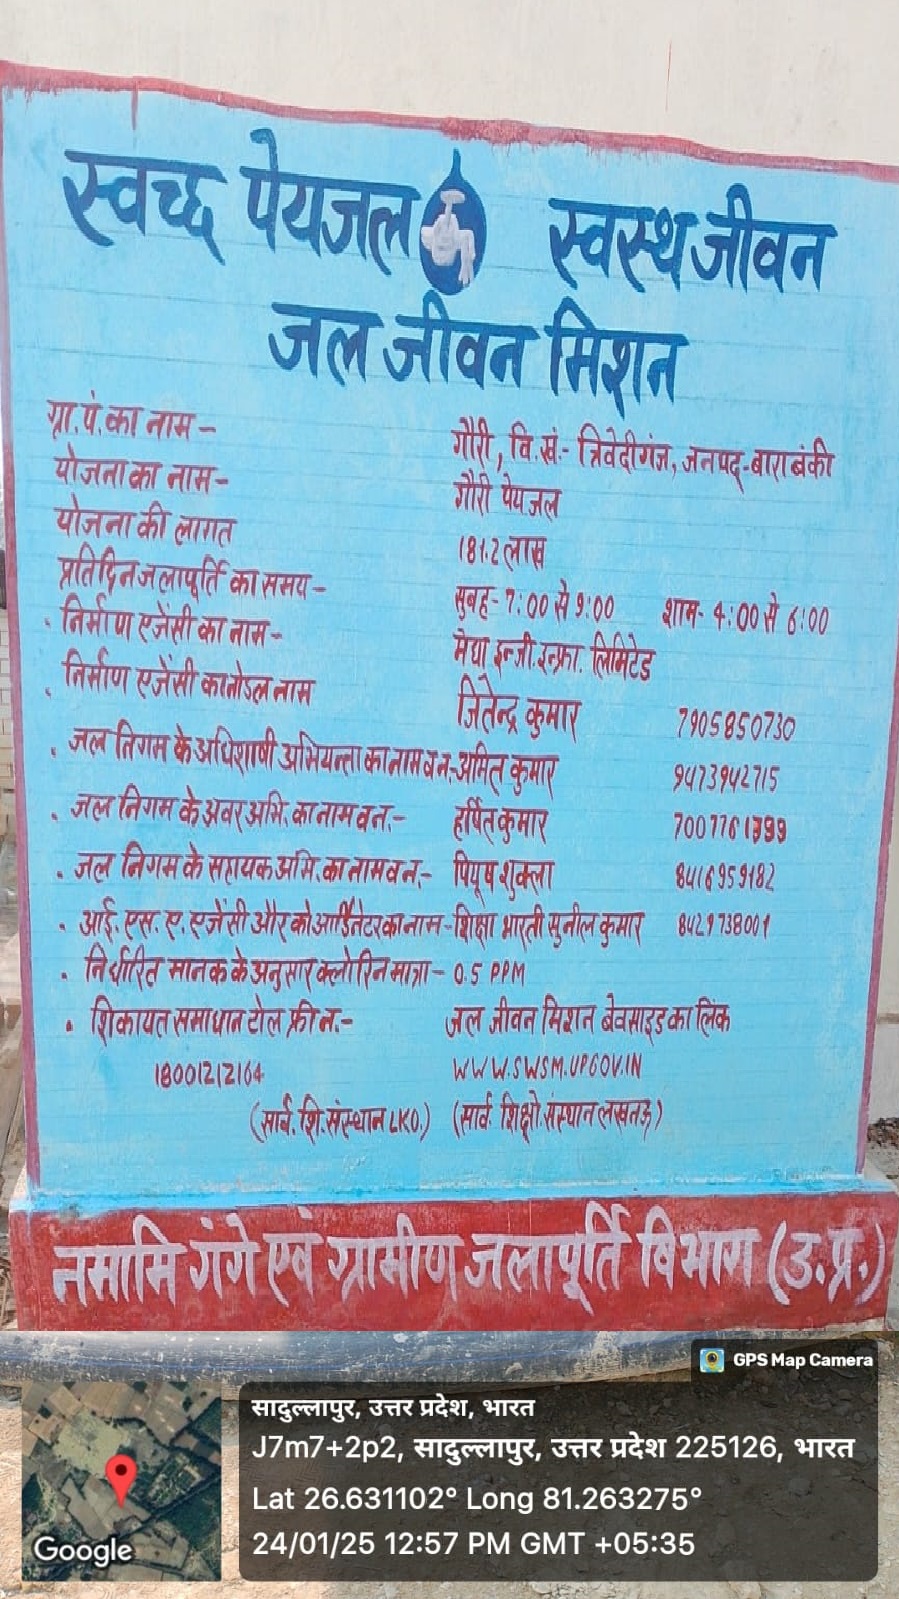 स्वच्छ पेयजल स्वस्थ जीवन
जल जीवन मिशन
ग्रा.पं.का नाम - गौरी, वि.खं.- त्रिवेदीगंज, जनपद-बाराबंकी
योजना का नाम- गौरी पेयजल
योजना की लागत 181.2 लाख
प्रतिदिन जलापूर्ति का समय- सुबह- 7:00 से 9:00 शाम- 4:00 से 6:00
निर्माण एजेंसी का नाम- मेघा इन्जी.इन्फ्रा. लिमिटेड
निर्माण एजेंसी का नोडल नाम जितेन्द्र कुमार 7905850730
जल निगम के अधिशाषी अभियन्ता का नाम व न.- अमित कुमार 9473942715
जल निगम के अवर अभि. का नाम व न.- हर्षित कुमार 7007761399
जल निगम के सहायक अभि. का नाम व न.- पियूष शुक्ला 8416959182
आई. एस. ए. एजेंसी और को आर्डिनेटर का नाम- शिक्षा भारती सुनील कुमार 8429738001
निर्धारित मानक के अनुसार क्लोरिन मात्रा- 0.5 PPM
शिकायत समाधान टोल फ्री न.- जल जीवन मिशन बेवसाइड का लिंक
18001212164 WWW.SWSM.UPGOV.IN
(सार्व. शि.संस्थान LKO.) (सार्व. शिक्षो.संस्थान लखनऊ)
नमामि गंगे एवं ग्रामीण जलापूर्ति विभाग (उ.प्र.)
GPS Map Camera
सादुल्लापुर, उत्तर प्रदेश, भारत
J7m7+2p2, सादुल्लापुर, उत्तर प्रदेश 225126, भारत
Lat 26.631102° Long 81.263275°
24/01/25 12:57 PM GMT +05:35
Google